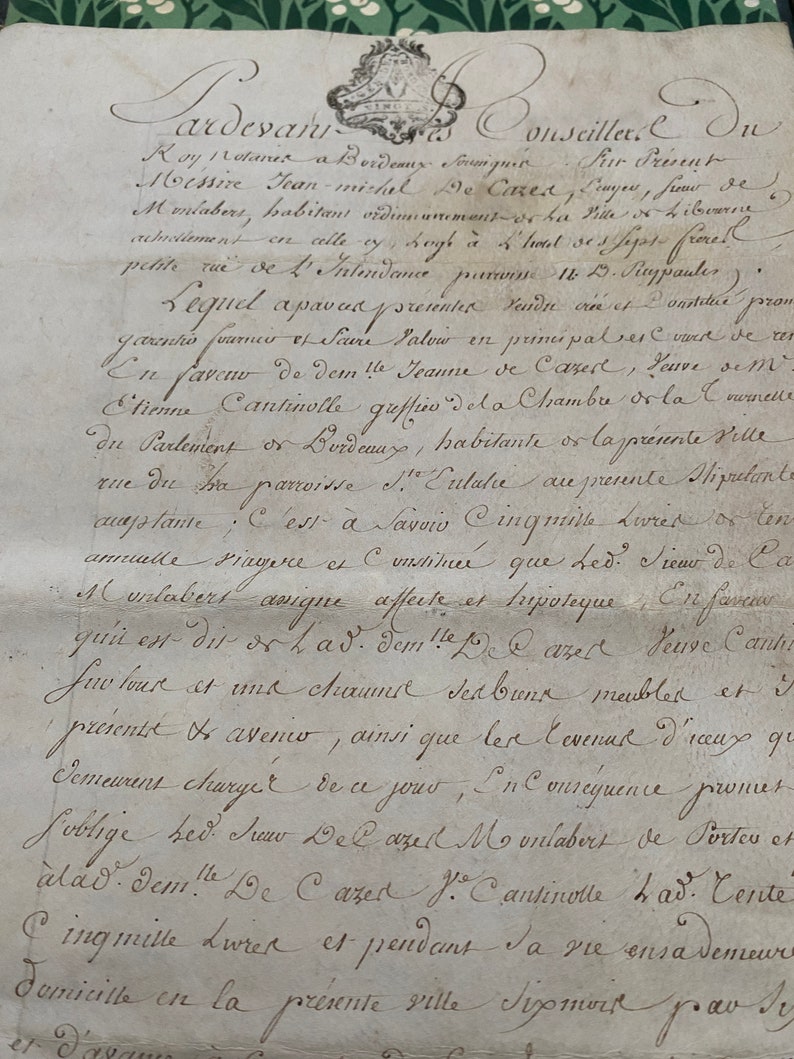 Pardevant Les Conseillers Du
Roy Notaires a Bordeaux soussignés fut Présent
Messire Jean-michel De Cazes, Ecuyer, sieur de
Monlabert, habitant ordinairement de La Ville de Libourne
actuellement en celle cy, Logé à L'hotel des Sept freres
petite ruë de L'Intendance parroisse N. D. Puypaulin,
Lequel apar ces présentes vendu créé et Constitué prom
garentir fournir et faire Valoir en principal et Cours de ren
En faveur de dem.lle Jeanne de Cazes, Veuve de M.
Etienne Cantinolle greffier dela Chambre de la Tournelle
du Parlement de Bordeaux, habitante de la présente Ville
rue du ha parroisse S.te Eulalie au presente Stipulante
acceptante; C'est à Savoir Cinqmille Livres de ren
annuelle viagere et Constituée que Led. Sieur de Ca
Monlabert assigne affecte et hipoteque, En faveur
qu'il est dit de Lad. dem.lle De Cazes Veuve Canti
sur tous et uns chacuns ses biens meubles et I
présents & avenir, ainsi que les revenus d'iceux qu
demeurent chargés de ce jour, En Conséquence promet
s'oblige Led. Sieur De Cazes Monlabert de Porter et
à lad. dem.lle De Cazes V.e Cantinolle Lad. rente
Cinqmille Livres et pendant Sa vie ensa demeure
domicille en la présente ville Sixmois par Six
et d'avance à